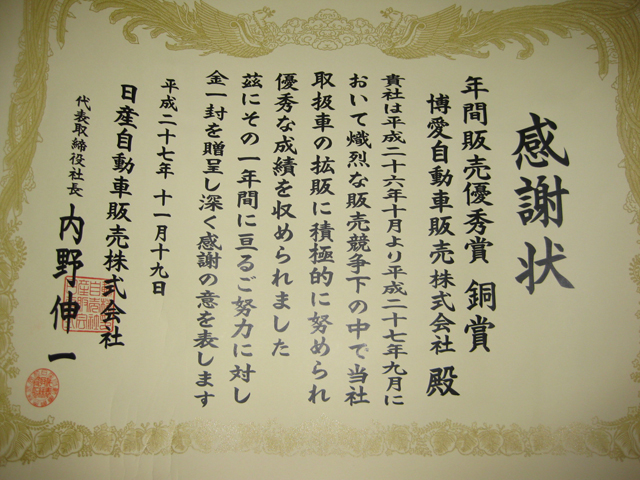 感謝状
年間販売優秀賞 銅賞
博愛自動車販売株式会社 殿
貴社は平成二十六年十月より平成二十七年九月に
おいて熾烈な販売競争下の中で当社
取扱車の拡販に積極的に努められ
優秀な成績を収められました
茲にその一年間に亘るご努力に対し
金一封を贈呈し深く感謝の意を表します
平成二十七年 十一月十九日
日産自動車販売株式会社
代表取締役社長 内野伸一